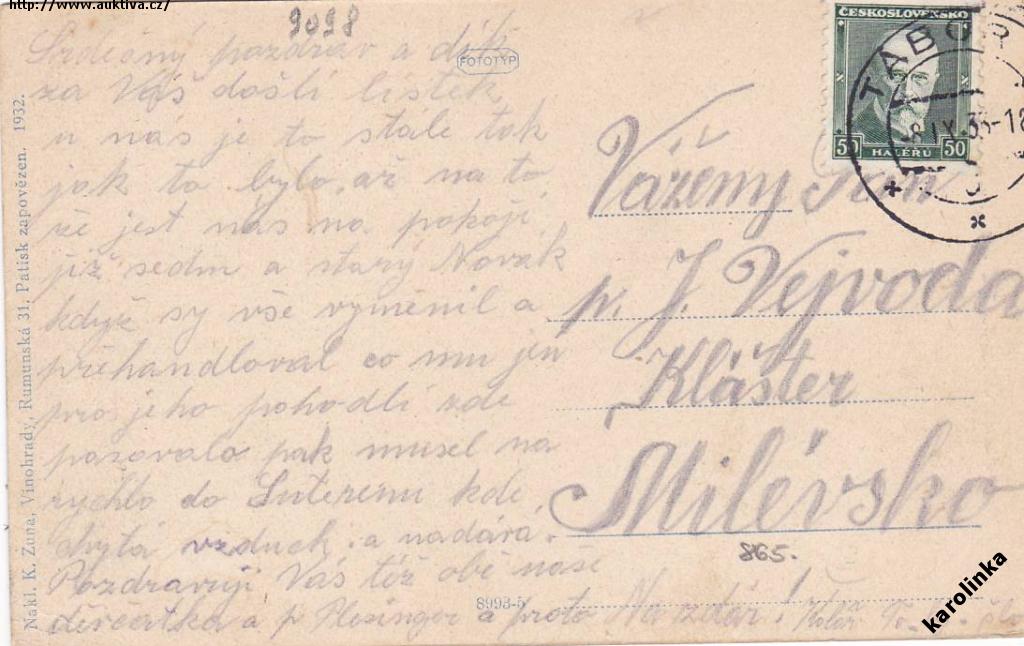 http://www.auktiva.cz/
9098
Srdečný pozdrav a dík
za Váš došlí lístek
u nás je to stále tak
jak to bylo, až na to
že jest nás na pokoji
již sedm a starý Novák
když sy vše vyměnil a
přehandloval co mu jen
pro jeho pohodlí zde
pasovalo pak musel na
rychlo do Suterenu kde
chytá vzduch a nadárá.
Pozdravují Vás též obě naše
děvčátka a p Plesinger a proto Na zdar!
FOTOTYP
Nakl. K. Zuna, Vinohrady, Rumunská 31. Patisk zapovězen. 1932.
8993-5
ČESKOSLOVENSKO
50 HALÉŘŮ 50
TÁBOR
Vážený Pan
p. J. Vejvoda
Klášter
Milévsko
865.
karolinka